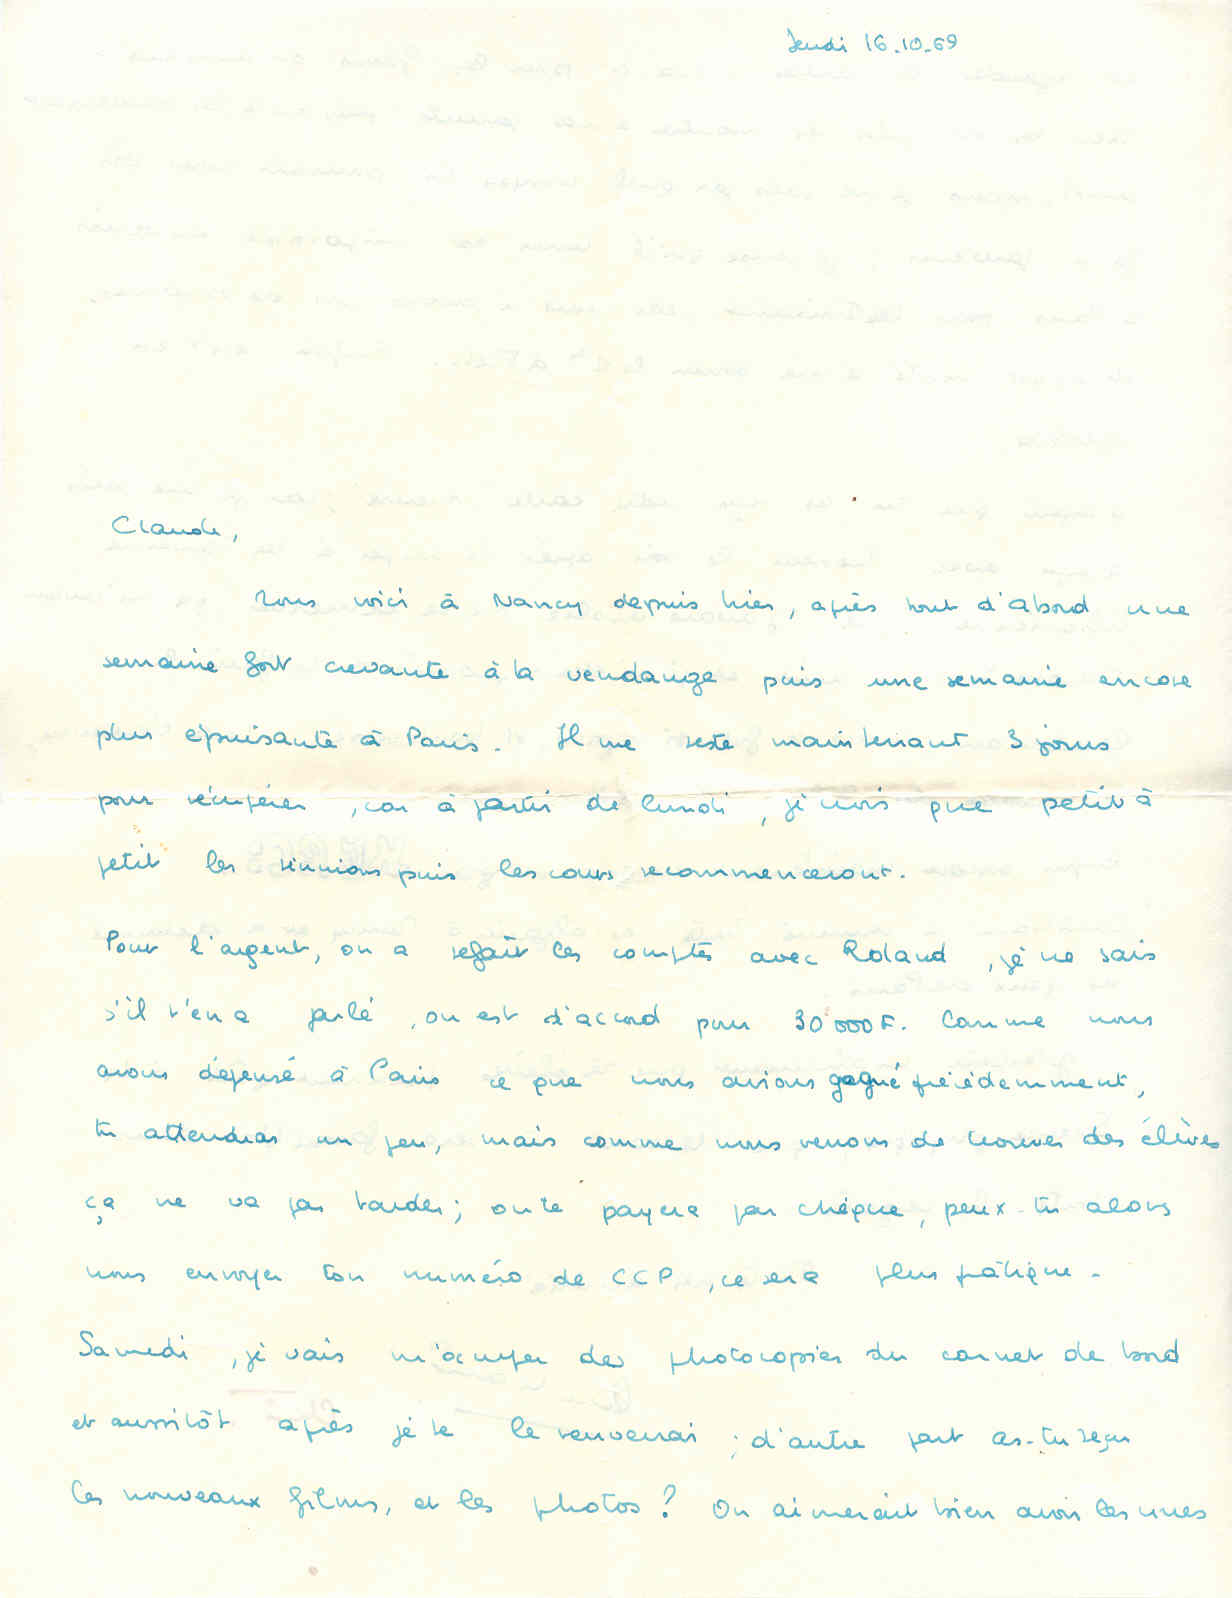 Jeudi 16.10.69
Claude,
Nous voici à Nancy depuis hier, après tout d'abord une
semaine fort crevante à la vendange puis une semaine encore
plus épuisante à Paris. Il me reste maintenant 3 jours
pour récupérer, car à partir de lundi, je crois que petit à
petit les réunions puis les cours recommenceront.
Pour l'argent, on a refait les comptes avec Roland, je ne sais
s'il t'en a parlé, on est d'accord pour 30 000 F. Comme nous
avons dépensé à Paris ce que nous avions gagné précédemment,
tu attendras un peu, mais comme nous venons de trouver des élèves
ça ne va pas tarder; on te payera par chèque, peux-tu alors
nous envoyer ton numéro de CCP, ce sera plus pratique.
Samedi, je vais m'occuper des photocopies du carnet de bord
et aussitôt après je te le renverrai; d'autre part as-tu reçu
les nouveaux films, et les photos? On aimerait bien avoir les unes